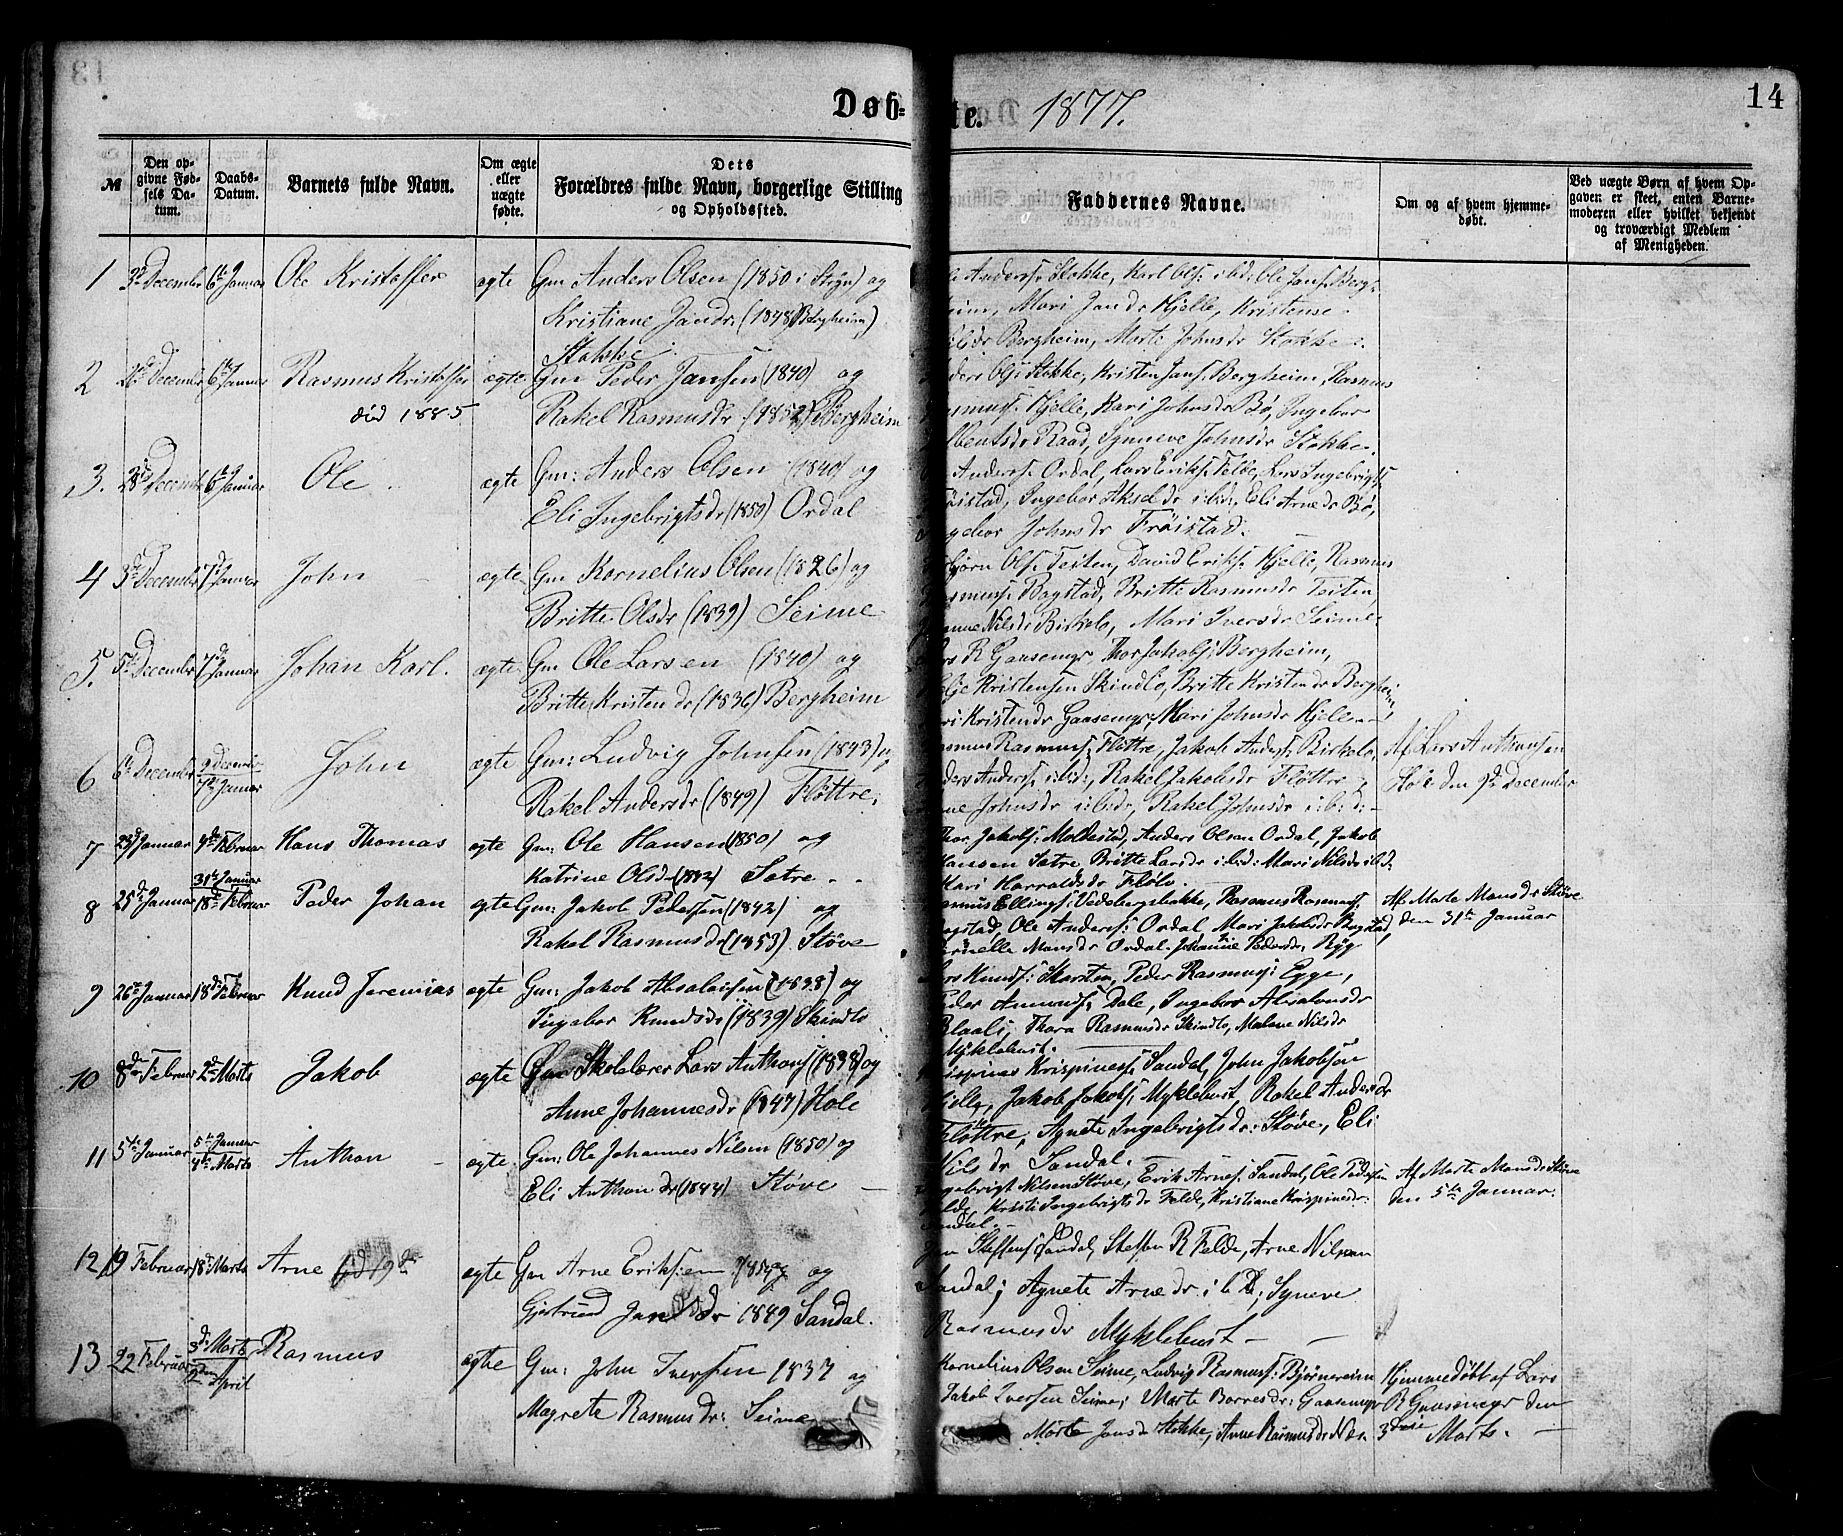 14
Døb-te. 1877.
№
Den op-
givne Fød-
sels Da-
tum.
Daabs-
Datum.
Barnets fulde Navn.
Om ægte
eller
uægte
fødte.
Dets
Forældres fulde Navn, borgerlige Stilling
og Opholdssted.
Faddernes Navne.
Om og af hvem hjemme-
døbt.
Ved uægte Børn af hvem Op-
gaven er skeet, enten Barne-
moderen eller hvilket bekjendt
og troværdigt Medlem
af Menigheden.
1 December 6te Januar Ole Kristoffer ægte Gm Anders Olsen (1850 i Stryn) og
Kristiane Jansdr. (1848 Bergheim)
Stokke.
Anders. Stokke, Karl Ols. i bd: Ole Jans. Berg-
heim, Mari Jansdr Hjelle, Kristense
Bergheim, Marte Johnsdr Stokke.
2 December 6te Januar Rasmus Kristoffer ægte Gm Peder Jansen (1840) og
død 1885
Rakel Rasmusdr. (1852) Bergheim
Ols. Stokke, Kristen Jans. Bergheim, Rasmus
Hjelle, Kari Johnsdr Bø, Ingebor
Raad, Synneve Johnsdr Stokke.
3. 28de December 6te Januar Ole. ægte Gm: Anders Olsen (1840) og
Eli Ingebrigtsdr (1850) Ordal
Anders. Ordal, Lars Eriks. Felde, Lars Ingebrigts.
Frøistad, Ingebor Akseldr i bd:, Eli Arnedr Bø,
Johnsdr Frøistad.
4 December 7de Januar John - ægte Gm Kornelius Olsen (1826) og
Britte Olsdr (1839) Seime
Ols. Teiten, David Eriks. Hjelle, Rasmus
Rasmus. Bogstad, Britte Rasmusdr Teiten,
Nilsdr Birkelo, Mari Iversdr Seime.
5. 5te December 7de Januar Johan Karl. ægte Gm Ole Larsen (1840) og
Britte Kristendr (1836) Bergheim
Lars R Gaasemyr, Thor Jakobs. Bergheim,
Kristensen Skindlo, Britte Kristendr Bergheim,
Kristendr Gaasemyr, Mari Johnsdr Hjelle.
6 6te December 9 December
7de Januar John ægte Gm: Ludvig Johnsen (1843) og
Rakel Andersdr (1849) Fløttre.
Rasmus Rasmus. Fløttre, Jakob Anders. Birkelo,
Anders Anders. i:bd:, Rakel Jakobsdr Fløttre,
Johnsdr i:bd:, Rakel Johnsdr i:b:d:-
Af Lars Anthonsen
Hole den 9de December
7 23d Januar 4de Februar Hans Thomas ægte Gm: Ole Hansen (1850) og
Katrine Olsd. Sætre.
Thor Jakobs. Moldestad, Anders Olsen Ordal, Jakob
Hansen Sætre, Britte Larsdr i:bd: Mari Nilsdr i bd.
Kari Harraldsdr Fløtre.
8 25de Januar 31te Januar
18de Februar Peder Johan ægte Gm: Jakob Pedersen (1842) og
Rakel Rasmusdr (1853). Støve
Rasmus Ellings. Vedebergsbakke, Rasmus Rasmus.
Bogstad, Ole Anders. Ordal, Mari Jakobsdr Bogstad,
Mansdr Ordal. Johanne Pedersdr. Ryg
Af Marte Mansdr Støve
den 31te Januar
9 26te Januar 18de Febr Knud Jeremias ægte Gm: Jakob Absalonsen (1838) og
Ingebor Knudsdr (1839) Skindlo
Lars Knuds. Karsten, Peder Rasmus. Egge,
Peder Amunds. Dale, Ingebor Absalonsdr
Blaali, Thora Rasmusdr Skindlo, Malene Nilsdr
Myklebust.
10 8de Februar 2de Marts Jakob ægte Gm Skolelærer Lars Anthons. (1838) og
Anne Johannesdr (1847) Hole
Krispinus Krispines. Sandal, John Jakobsen
Jakob Jakobs. Myklebust, Rakel Andersdr
Fløttre, Agnete Ingebrigtsdr. Støve, Eli
Nilsdr Sandal.
11 5te Januar 5te Januar
4de Marts Anthon - ægte Gm: Ole Johannes Nilsen (1850) og
Eli Anthondr (1844) Støve -
Ingebrigt Nilsen Støve, Erik Arnes. Sandal, Ole Pedersen
Felde, Kristi Ingebrigtsdr Felde, Kristiane Krispinesdr.
Sandal.
Af Marte Mansdr Støve
den 5te Januar.
12 19 Februar 18d Marts Arne ægte Gm Arne Eriksen og
Gjertrud Jansdr 1849 Sandal.
Jan Steffens. Sandal, Steffen R Felde, Arne Nilsen
Sandal, Agnete Arnedr i bd, Syneve
Rasmusdr Myklebust -
13 22 Februar 3de Marts
2den April Rasmus ægte Gm: John Iversen 1837 og
Magrete Rasmusdr: Seime
Kornelius Olsen Seime, Ludvig Rasmus. Bjørnereim
Jakob Iversen Seime, Marte Borresdr. Gaasemyr
Marte Jansdr Stokke, Anne Rasmusdr Næs.
Hjemmedøbt af Lars
R Gaasemyr den
3die Marts. -